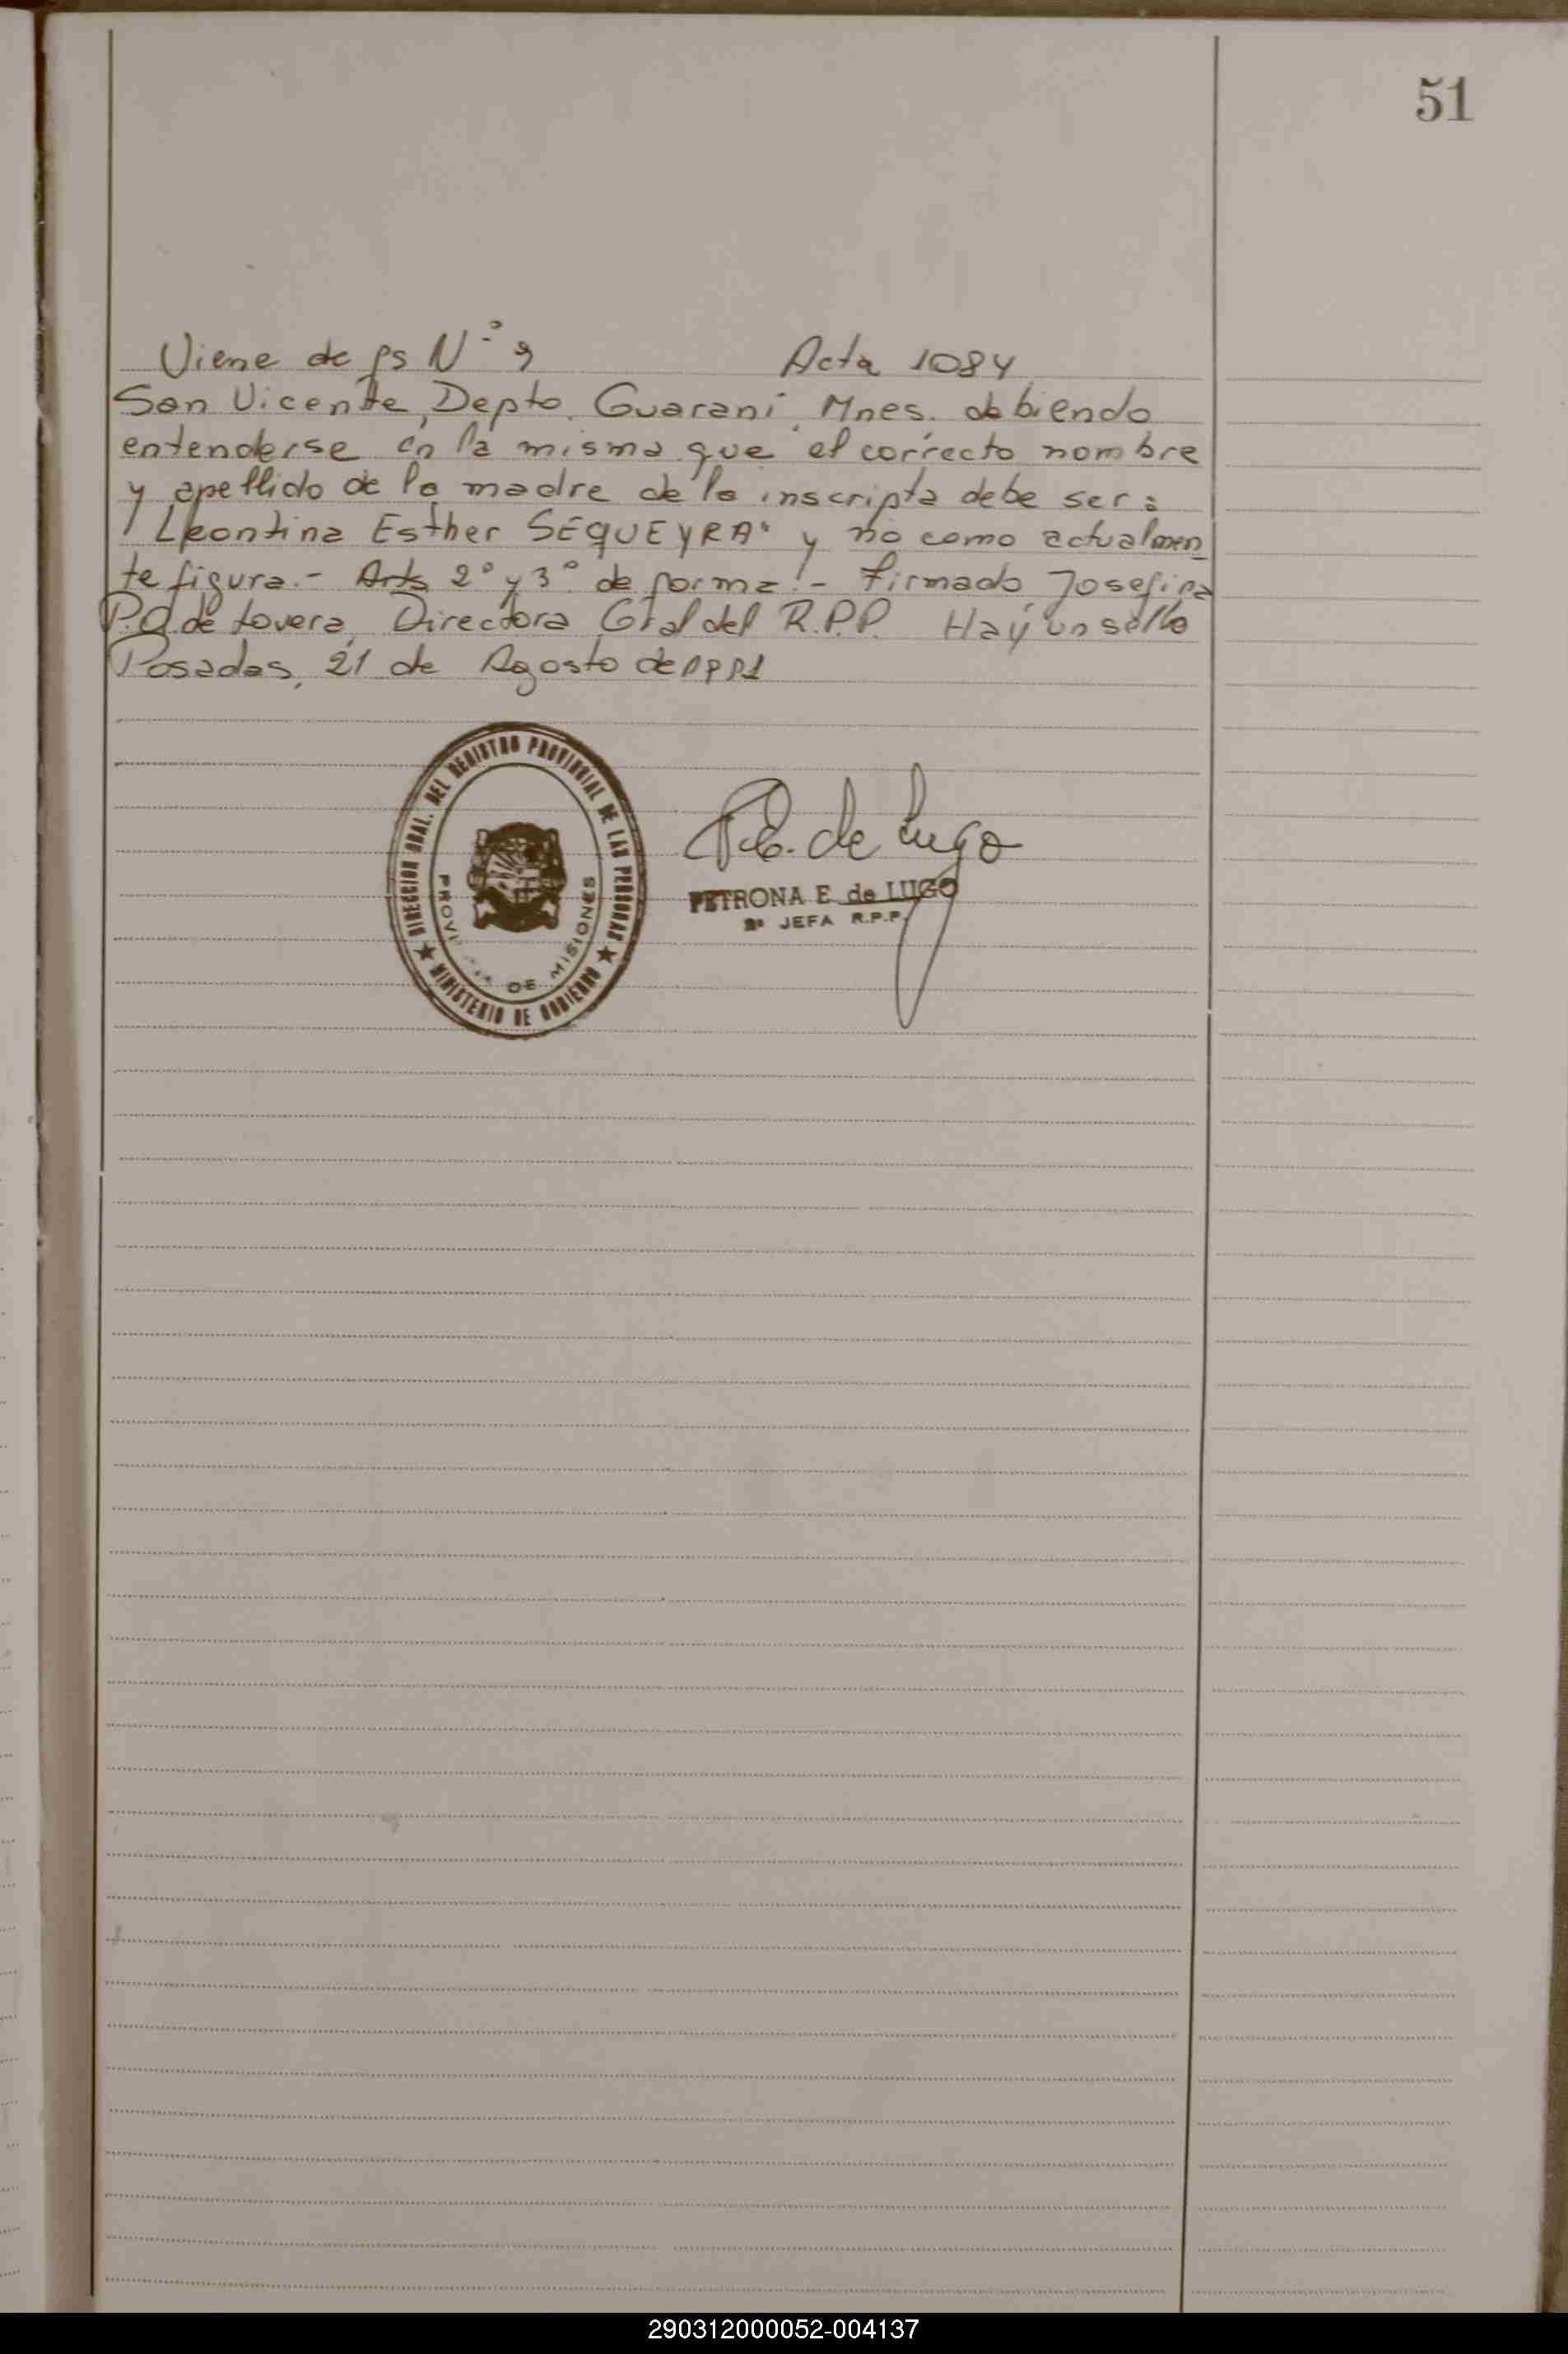 51
Viene de fs Nº 9 Acta 1084
San Vicente, Depto. Guaraní, Mnes. debiendo
entenderse en la misma que el correcto nombre
y apellido de la madre de la inscripta debe ser:
"Leontina Esther SEQUEYRA" y no como actualmen
te figura.- Arts 2º y 3º de forma.- Firmado Josefina
P.O. de Lovera, Directora Gral del R.P.P. Hay un sello
Posadas, 21 de Agosto de
DIRECCION GRAL. DEL REGISTRO PROVINCIAL DE LAS PERSONAS
PROVINCIA DE MISIONES
★ MINISTERIO DE GOBIERNO ★
P.E. de Lugo
PETRONA E. de LUGO
2ª JEFA R.P.P.
290312000052-004137